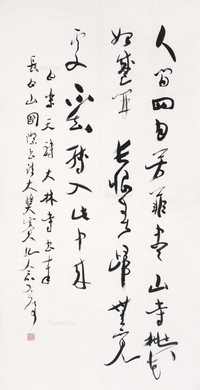 人間四月芳菲盡山寺桃花
始盛開長恨春歸無覓
處不知轉入此中來
白樂天詩大林寺
長白山國際書法大